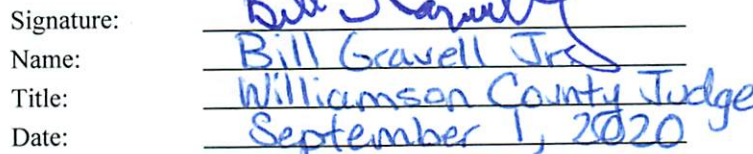 Signature: Bill Gravell
Name: Bill Gravell Jr.
Title: Williamson County Judge
Date: September 1, 2020